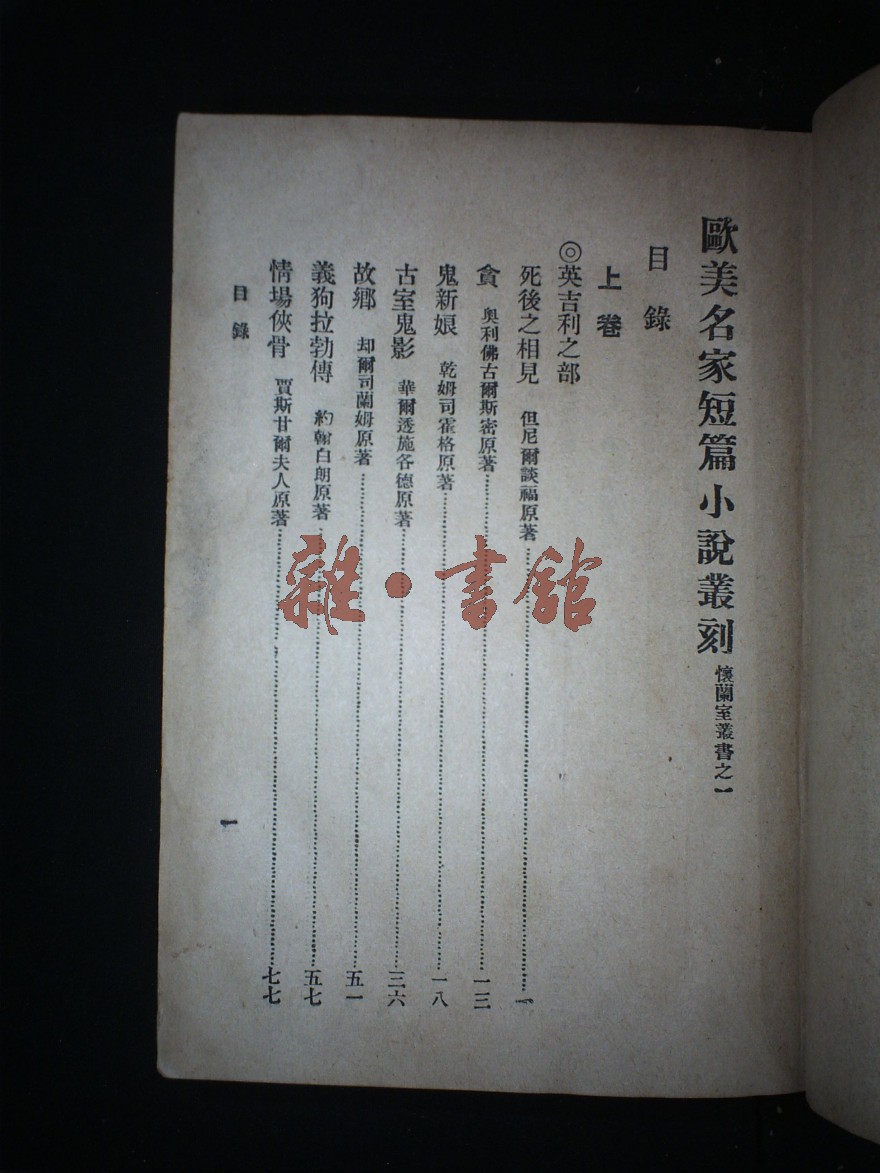 歐美名家短篇小說叢刻 懷蘭室叢書之一
目錄
上卷
◎英吉利之部
死後之相見 但尼爾談福原著………一
貪 奧利佛古爾斯密原著………一三
鬼新娘 乾姆司霍格原著………一八
古室鬼影 華爾透施各德原著………三六
故鄉 却爾司蘭姆原著………五一
義狗拉勃傳 約翰白朗原著………五七
情場俠骨 賈斯甘爾夫人原著………七七
目錄
一
雜·書館